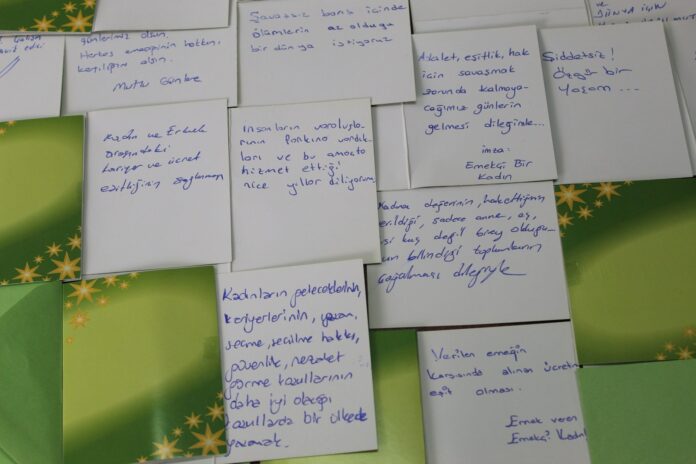 günlerimiz olsun.
Herkes emeğinin hakkını,
karşılığını alsın.
Mutlu Günler
Savaşsız barış içinde
ölümlerin az olduğu
bir dünya istiyoruz
DÜNYA İÇİN
Adalet, eşitlik, hak
için savaşmak
zorunda kalmaya-
cağımız günlerin
gelmesi dileğinde...
imza:
Emekçi Bir
Kadın
Şiddetsiz!
Özgür bir
yaşam...
Kadın ve Erkek
arasındaki
kariyer ve ücret
eşitliğinin sağlanması
insanların varoluşla-
rının farkına vardık-
ları ve bu amaçla
hizmet ettiği
nice yıllar diliyorum
Kadına değerinin, hak ettiğinin
verildiği, sadece anne, eş,
kuş değil birey olduğu-
nun bilindiği toplumların
çoğalması dileğiyle
Kadınların geleceklerinin,
kariyerlerinin, yaşam,
seçme, seçilme hakkı,
güvenlik, nezaket
görme koşullarının
daha iyi olacağı
koşullarda bir ülkede
yaşamak.
Verilen emeğin
karşısında alınan ücretin
eşit olması.
Emek veren
Emekçi Kadın